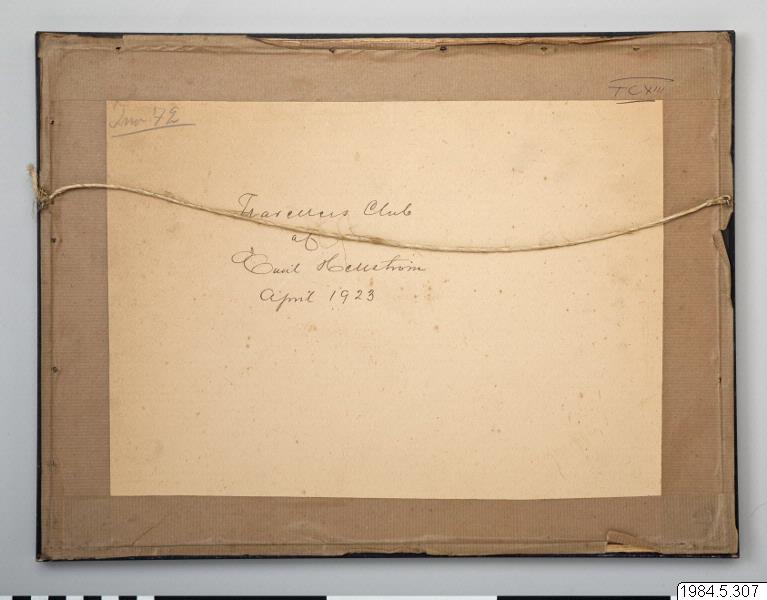 TCXIII
Inv 72
Travellers Club
af
Emil Hellström
April 1923
1984.5.307